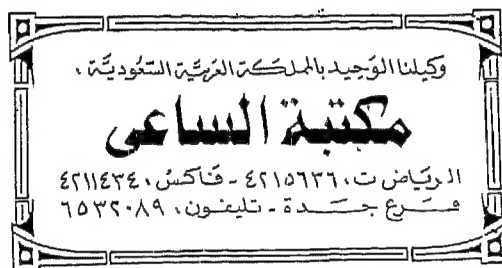 وكيلنا الوَحِيد بالمملكة العَربيَّة السَّعُوديَّة :
مكتبة الساعى
الرياض ت: ٤٢١٥٦٣٦ - فَاكسُ: ٤٢١١٤٣٤
فرع جدة - تليفون: ٦٥٣٢٠٨٩